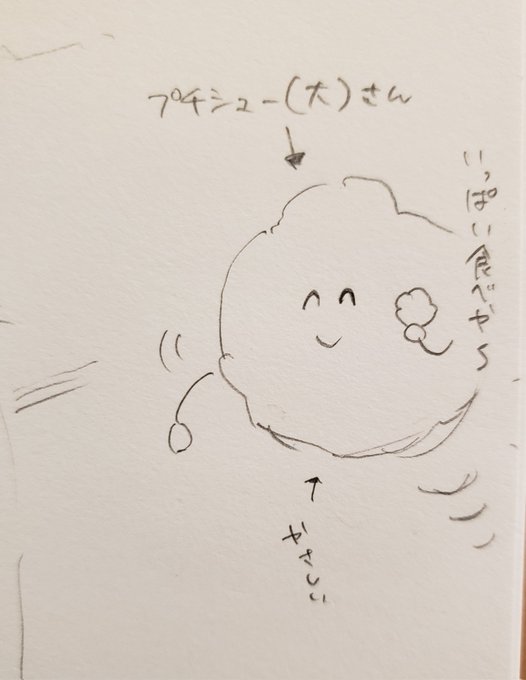 プチシュー(大)さん
いっぱい食べや〜
やさしい